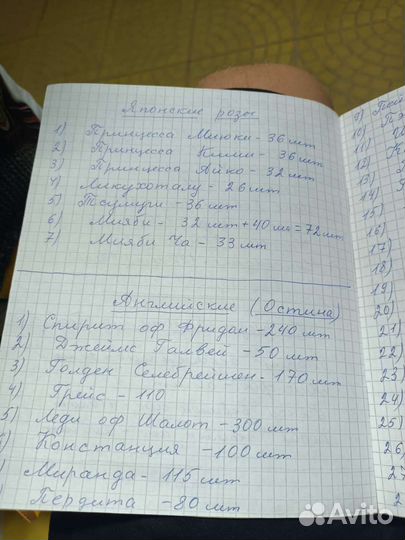 Японские розы
1) Принцесса Миюки - 36 шт
2) Принцесса Кишин - 36 шт
3) Принцесса Айко - 32 шт
4) Микухоталу - 26 шт
5) Тсумуги - 36 шт
6) Мияби - 32 шт + 40 шт = 72 шт
7) Мияби Ча - 33 шт
Английские (Остина)
1) Спирит оф Фридам - 240 шт
2) Джеймс Галвей - 50 шт
3) Голден Селебрейшен - 170 шт
4) Грейс - 110
5) Леди оф Шалот - 300 шт
Констанция - 100 шт
Миранда - 115 шт
Пердита - 80 шт
9)
10)
11)
12)
13)
14)
15)
16)
17)
18)
19)
20)
21)
22)
23)
24)
25)
26)
Avito